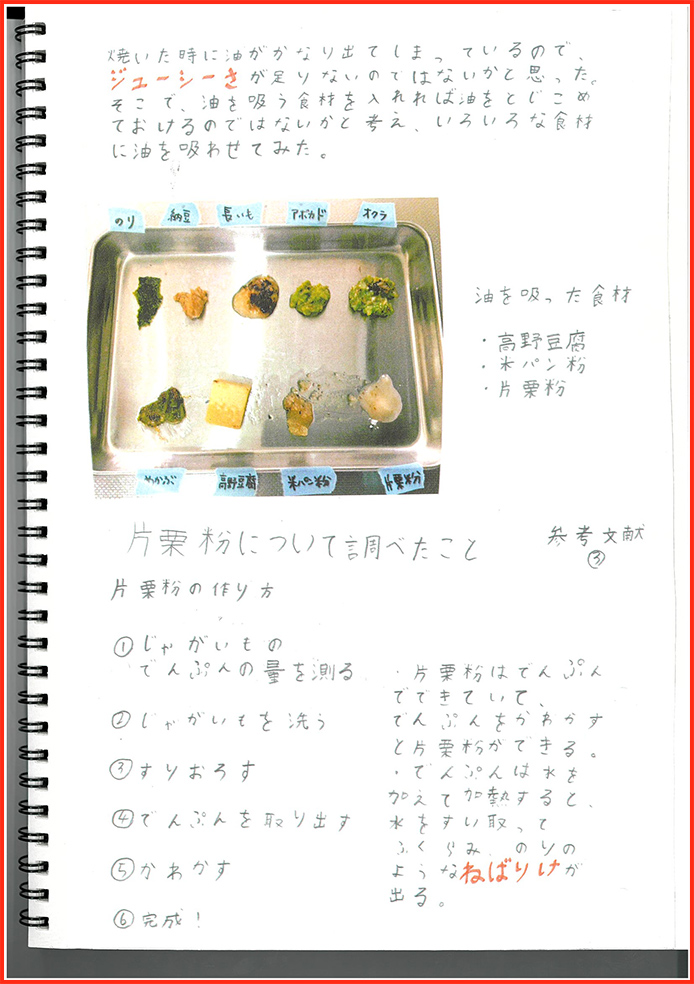 焼いた時に油がかなり出てしまっているので、
ジューシーさが足りないのではないかと思った。
そこで、油を吸う食材を入れれば油をとじこめ
ておけるのではないかと考え、いろいろな食材
に油を吸わせてみた。
のり 納豆 長いも アボカド オクラ
めかぶ 高野豆腐 米パン粉 片栗粉
油を吸った食材
・高野豆腐
・米パン粉
・片栗粉
片栗粉について調べたこと
参考文献
③
片栗粉の作り方
①じゃがいもの
でんぷんの量を測る
②じゃがいもを洗う
③すりおろす
④でんぷんを取り出す
⑤かわかす
⑥完成!
・片栗粉はでんぷん
でできていて、
でんぷんをかわかす
と片栗粉ができる。
・でんぷんは水を
加えて加熱すると、
水をすい取って
ふくらみ、のりの
ようなねばりけが
出る。